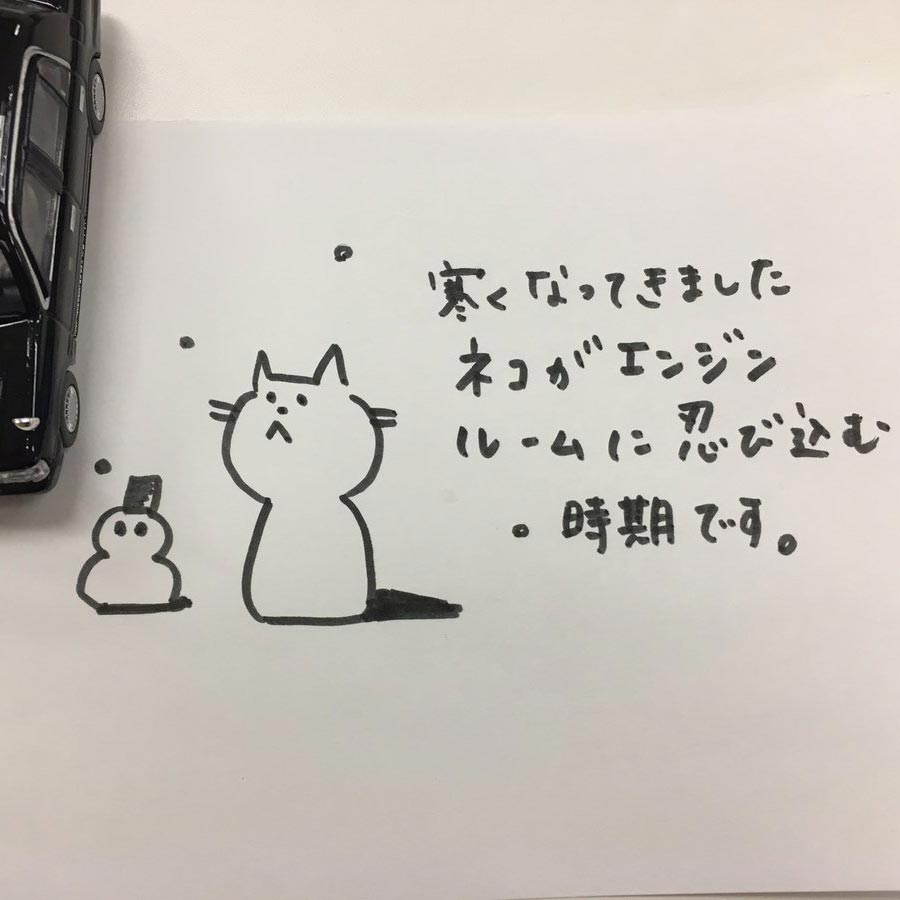 寒くなってきました
ネコがエンジン
ルームに忍び込む
時期です。